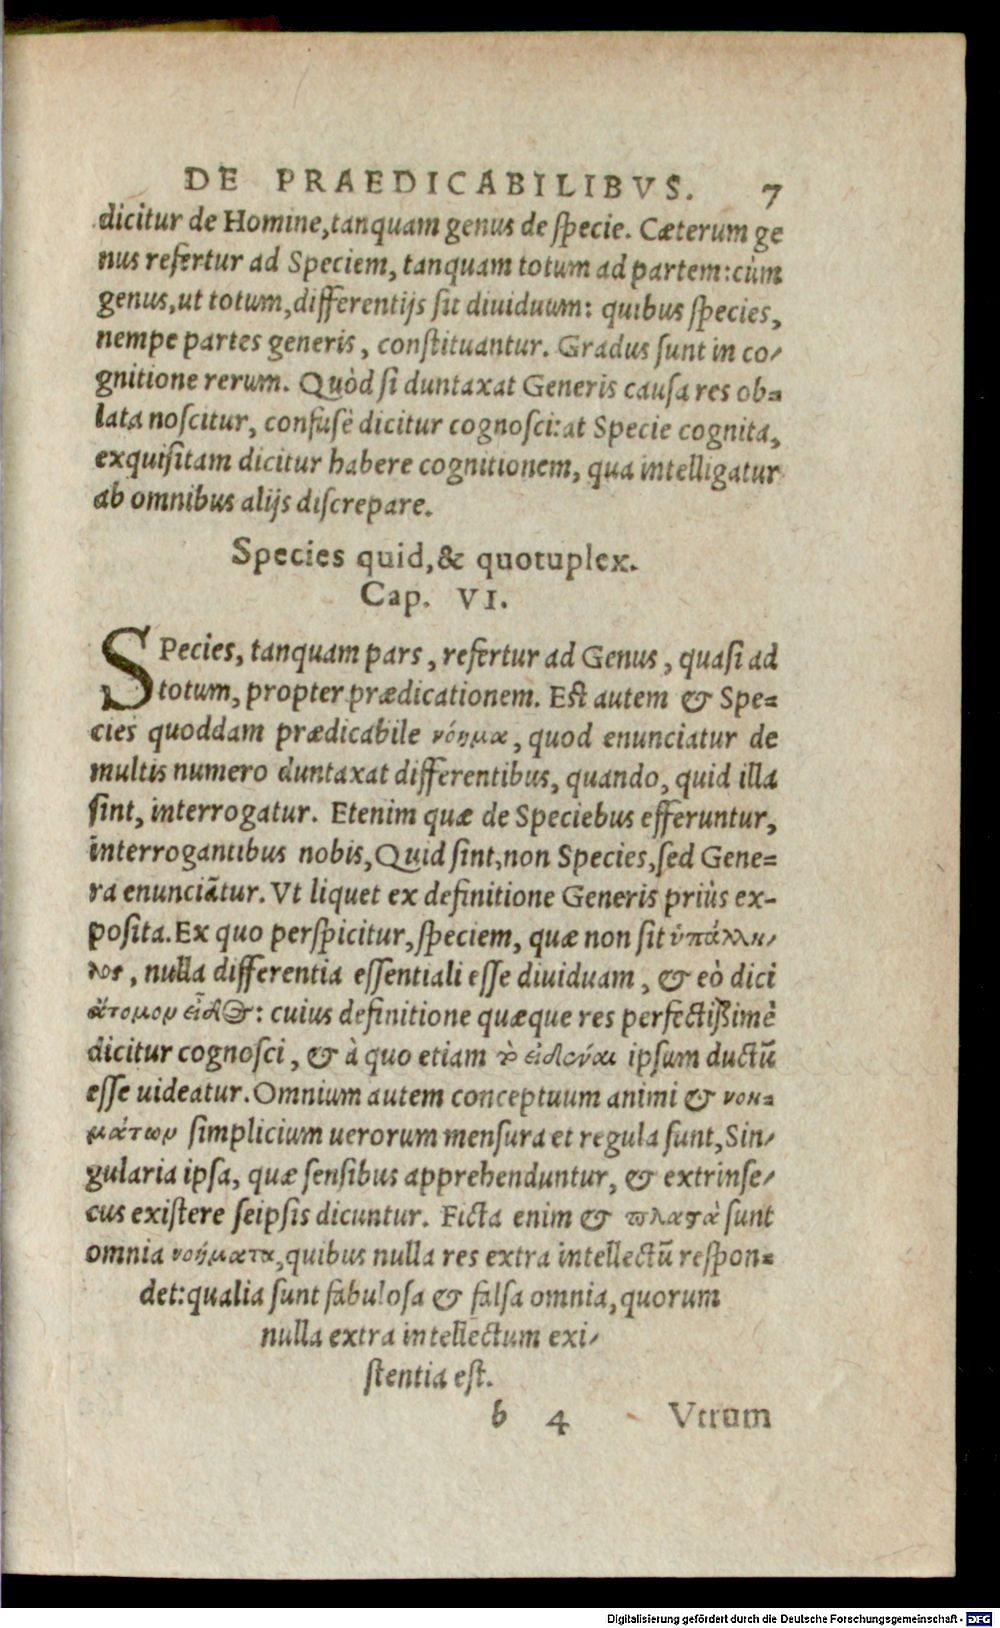 DE PRAEDICABILIBVS. 7
dicitur de Homine, tanquam genus de specie. Cæterum ge
nus refertur ad Speciem, tanquam totum ad partem: cùm
genus, ut totum, differentijs sit diuiduum: quibus species,
nempe partes generis, constituantur. Gradus sunt in co-
gnitione rerum. Quòd si duntaxat Generis causa res ob-
lata noscitur, confusè dicitur cognosci: at Specie cognita,
exquisitam dicitur habere cognitionem, qua intelligatur
ab omnibus alijs discrepare.
Species quid, & quotuplex.
Cap. VI.
SPecies, tanquam pars, refertur ad Genus, quasi ad
totum, propter prædicationem. Est autem & Spe-
cies quoddam prædicabile νόημα, quod enunciatur de
multis numero duntaxat differentibus, quando, quid illa
sint, interrogatur. Etenim quæ de Speciebus efferuntur,
interrogantibus nobis, Quid sint, non Species, sed Gene-
ra enunciãtur. Vt liquet ex definitione Generis priùs ex-
posita. Ex quo perspicitur, speciem, quæ non sit ὑπάλλη-
λος, nulla differentia essentiali esse diuiduam, & eò dici
ἄτομον εἶδος: cuius definitione quæque res perfectißimè
dicitur cognosci, & à quo etiam τὸ εἰδέναι ipsum ductũ
esse uideatur. Omnium autem conceptuum animi & νοη-
μάτων simplicium uerorum mensura et regula sunt, Sin-
gularia ipsa, quæ sensibus apprehenduntur, & extrinse-
cus existere seipsis dicuntur. Ficta enim & πλαστὰ sunt
omnia νοήματα, quibus nulla res extra intellectũ respon-
det: qualia sunt fabulosa & falsa omnia, quorum
nulla extra intellectum exi-
stentia est.
b 4 Vtrum
Digitalisierung gefördert durch die Deutsche Forschungsgemeinschaft - DFG